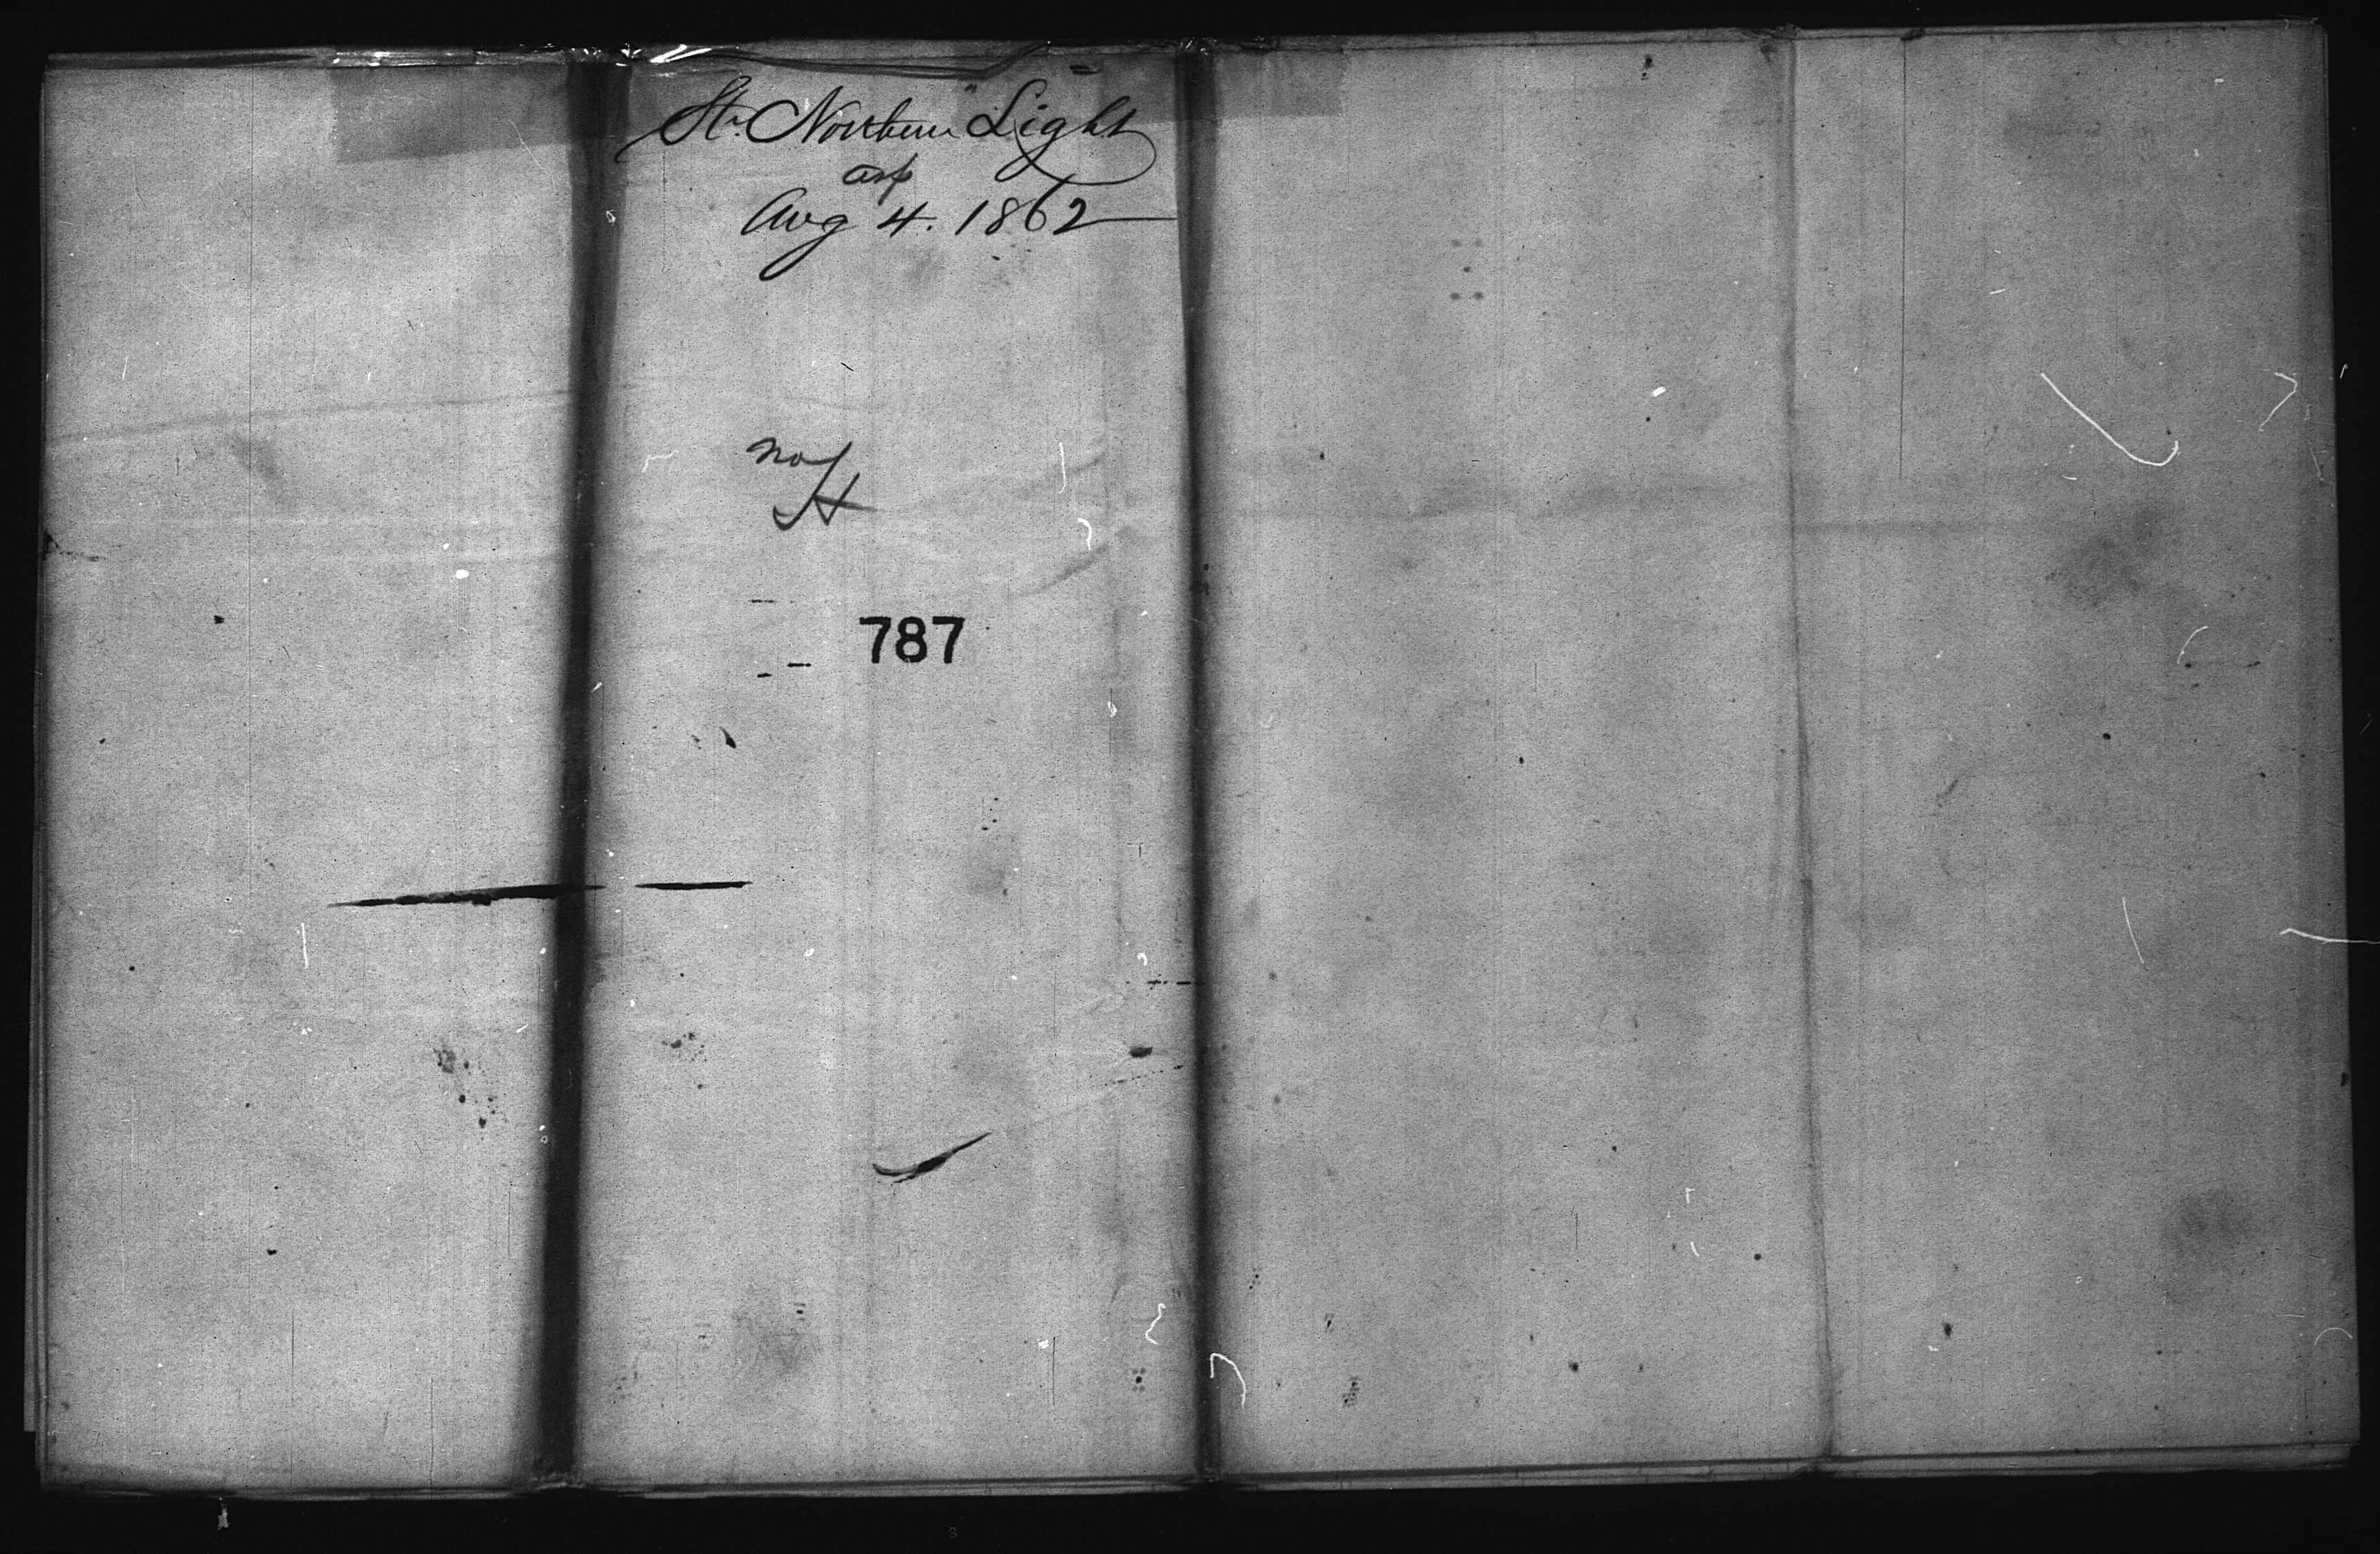 Str. Northern Light
Aug 4. 1862
no
787